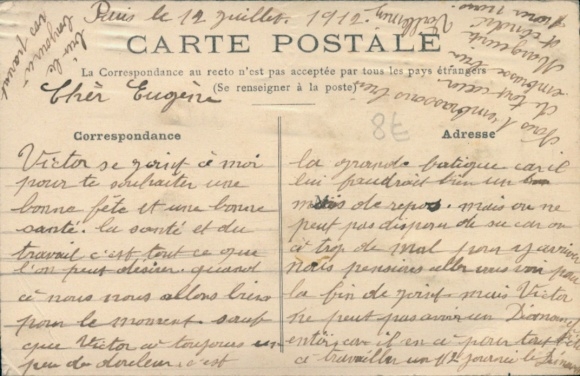 Paris le 12 juillet. 1912.
CARTE POSTALE
La Correspondance au recto n'est pas acceptée par tous les pays étrangers
(Se renseigner à la poste)
Chèr Eugène
8F
Correspondance
Victor se joint à moi
pour te souhaiter une
bonne fête et une bonne
santé. la santé et du
travail c'est tout ce que
l'on peut désirer. quand
à nous nous allons bien
pour le moment. sauf
que Victor a toujours un
peu de douleur. c'est
Adresse
la grande fatigue car il
lui faudrait bien un
mois de repos. mais on ne
peut pas disposer de su car on
a trop de mal pour y arriver
nous pensions aller vous voir pour
la fin de juin. mais Victor
ne peut pas avoir un Dimanche
entier, car il en a pour tout
a travailler un 1/2 journée le Diman
Nous t'embrassons
de tout cœur
Marguerite
bien le
bonjour à
vos parents